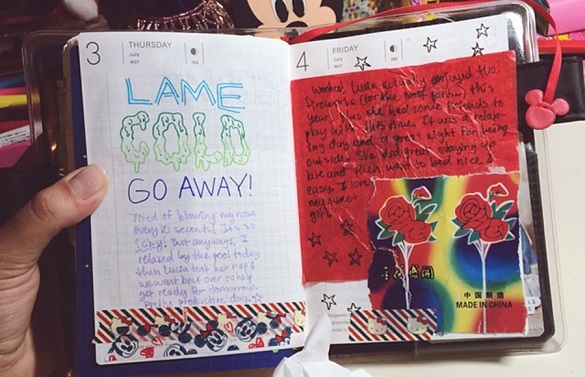 3
THURSDAY
July
LAME
COLD
GO AWAY!
Tired of blowing my nose
every 10 seconds. It's so
icky! But anyways, I
relaxed by the pool today
then Lucia took her nap &
we went back over to help
get ready for tomorrow.
Pretty productive day.
4
FRIDAY
July
Woohoo, Lucia actually enjoyed the
fireworks (for the most part) this
year. Plus she had some friends to
play with this time. It was a relax-
ing day and a great night for being
outside. She did great staying up
late and then went to bed nice &
easy. I love
my sweet
girl.
中国制造
MADE IN CHINA